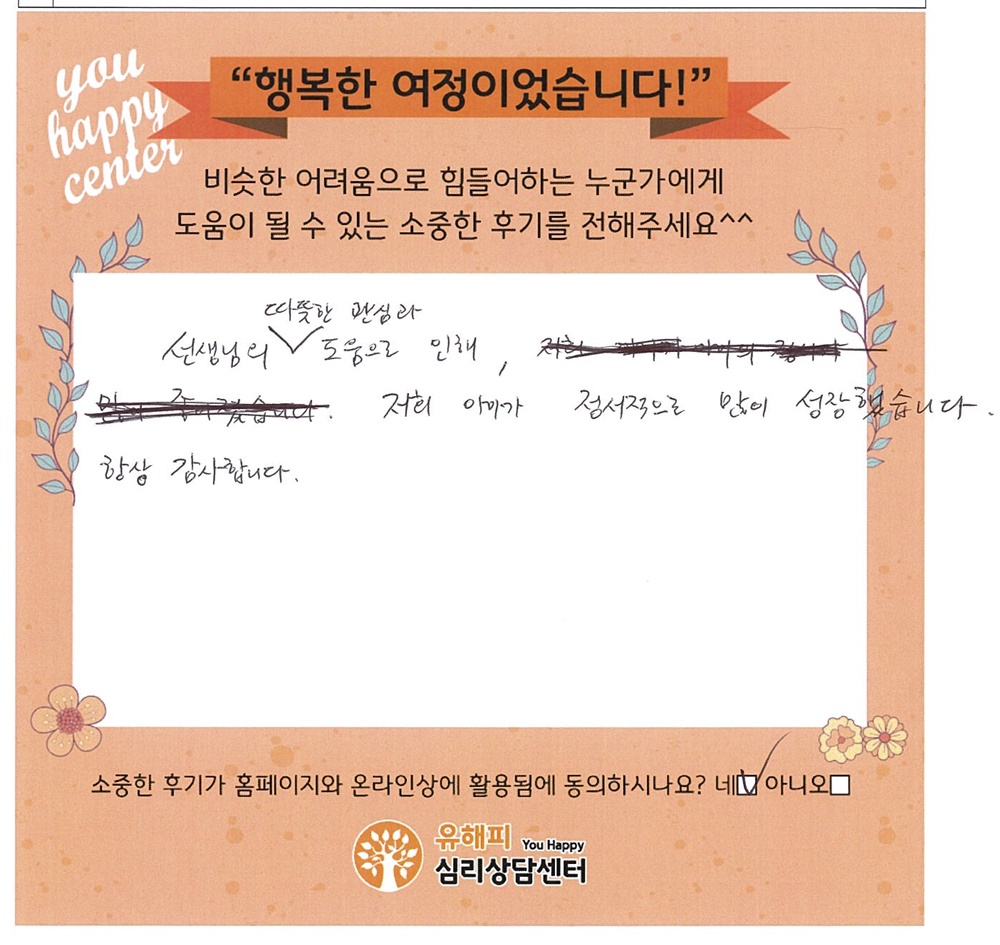 you
happy
center
“행복한 여정이었습니다!”
비슷한 어려움으로 힘들어하는 누군가에게
도움이 될 수 있는 소중한 후기를 전해주세요^^
따뜻한 관심과
선생님의 도움으로 인해,
저희 아이가 정서적으로 많이 성장했습니다.
항상 감사합니다.
소중한 후기가 홈페이지와 온라인상에 활용됨에 동의하시나요? 네 아니오
유해피 You Happy
심리상담센터